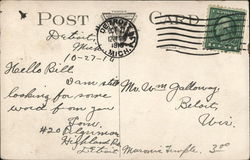 POST CARD
DETROIT
OCT 27
MICH.
Detroit,
Mich
10-27-18
Hello Bill
I am still
looking for some
word from you
Tom.
420
Highland Pk
Detroit
Mr. Wm Galloway,
Beloit,
Wis.
Masonic Temple